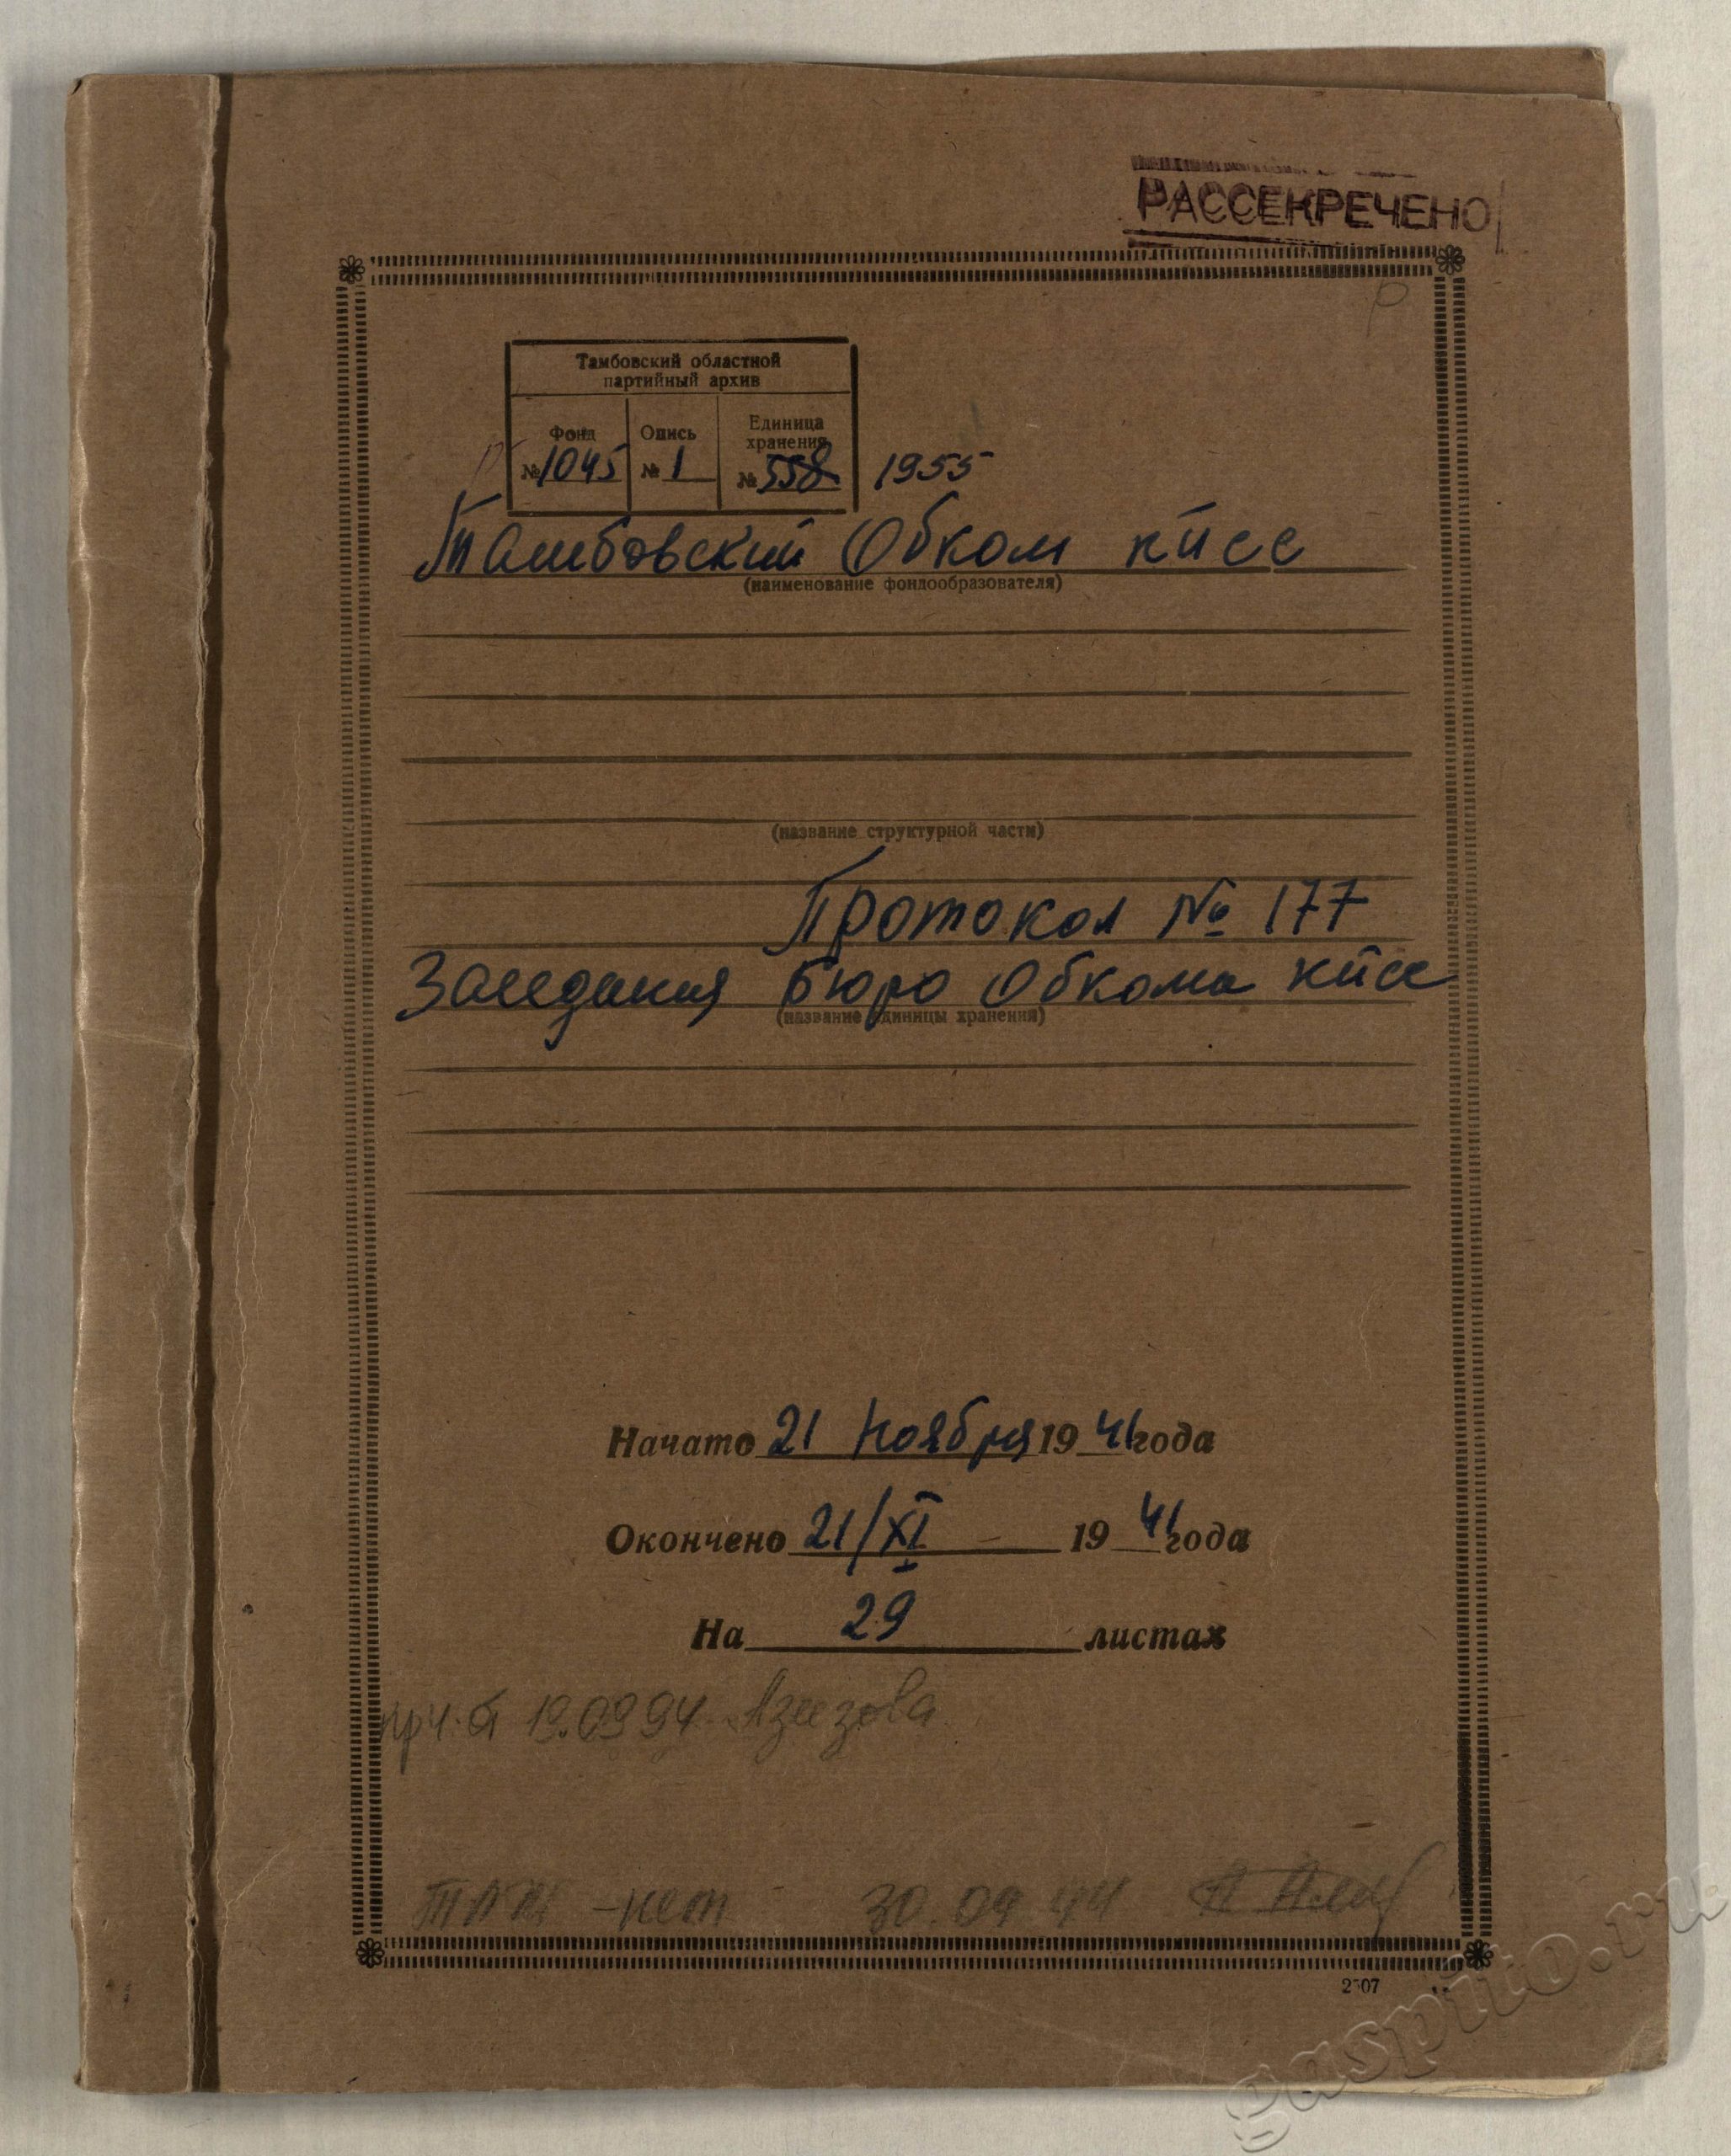 РАССЕКРЕЧЕНО
Тамбовский областной
партийный архив
Фонд Опись Единица хранения
№ 1045 № 1 № 558 1955
Тамбовский Обком КПСС
(наименование фондообразователя)
(название структурной части)
Протокол № 177
Заседания бюро Обкома КПСС
(название единицы хранения)
Начато 21 ноября 1941 года
Окончено 21/XI 1941 года
На 29 листах
19.09.94
нет 30.09.94
gaspito.ru